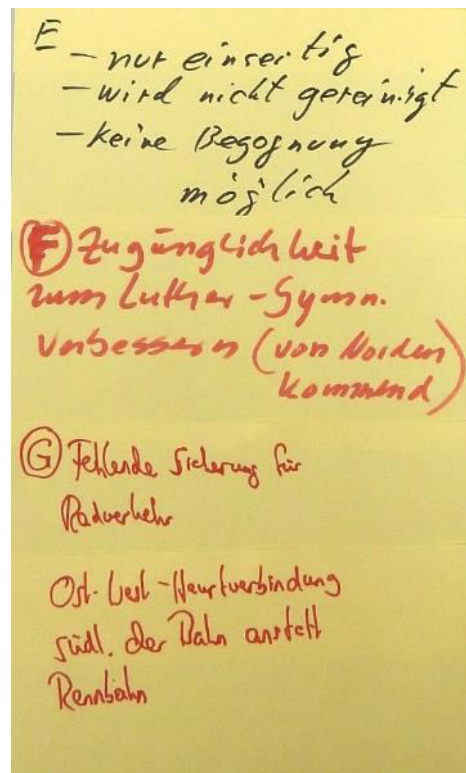 E
- nur einseitig
- wird nicht gereinigt
- keine Begegnung
möglich
F Zugänglichkeit
zum Luther-Gymn.
verbessern (von Norden
kommend)
G Fehlende Sicherung für
Radverkehr
Ost-West-Hauptverbindung
südl. der Bahn anstatt
Rennbahn